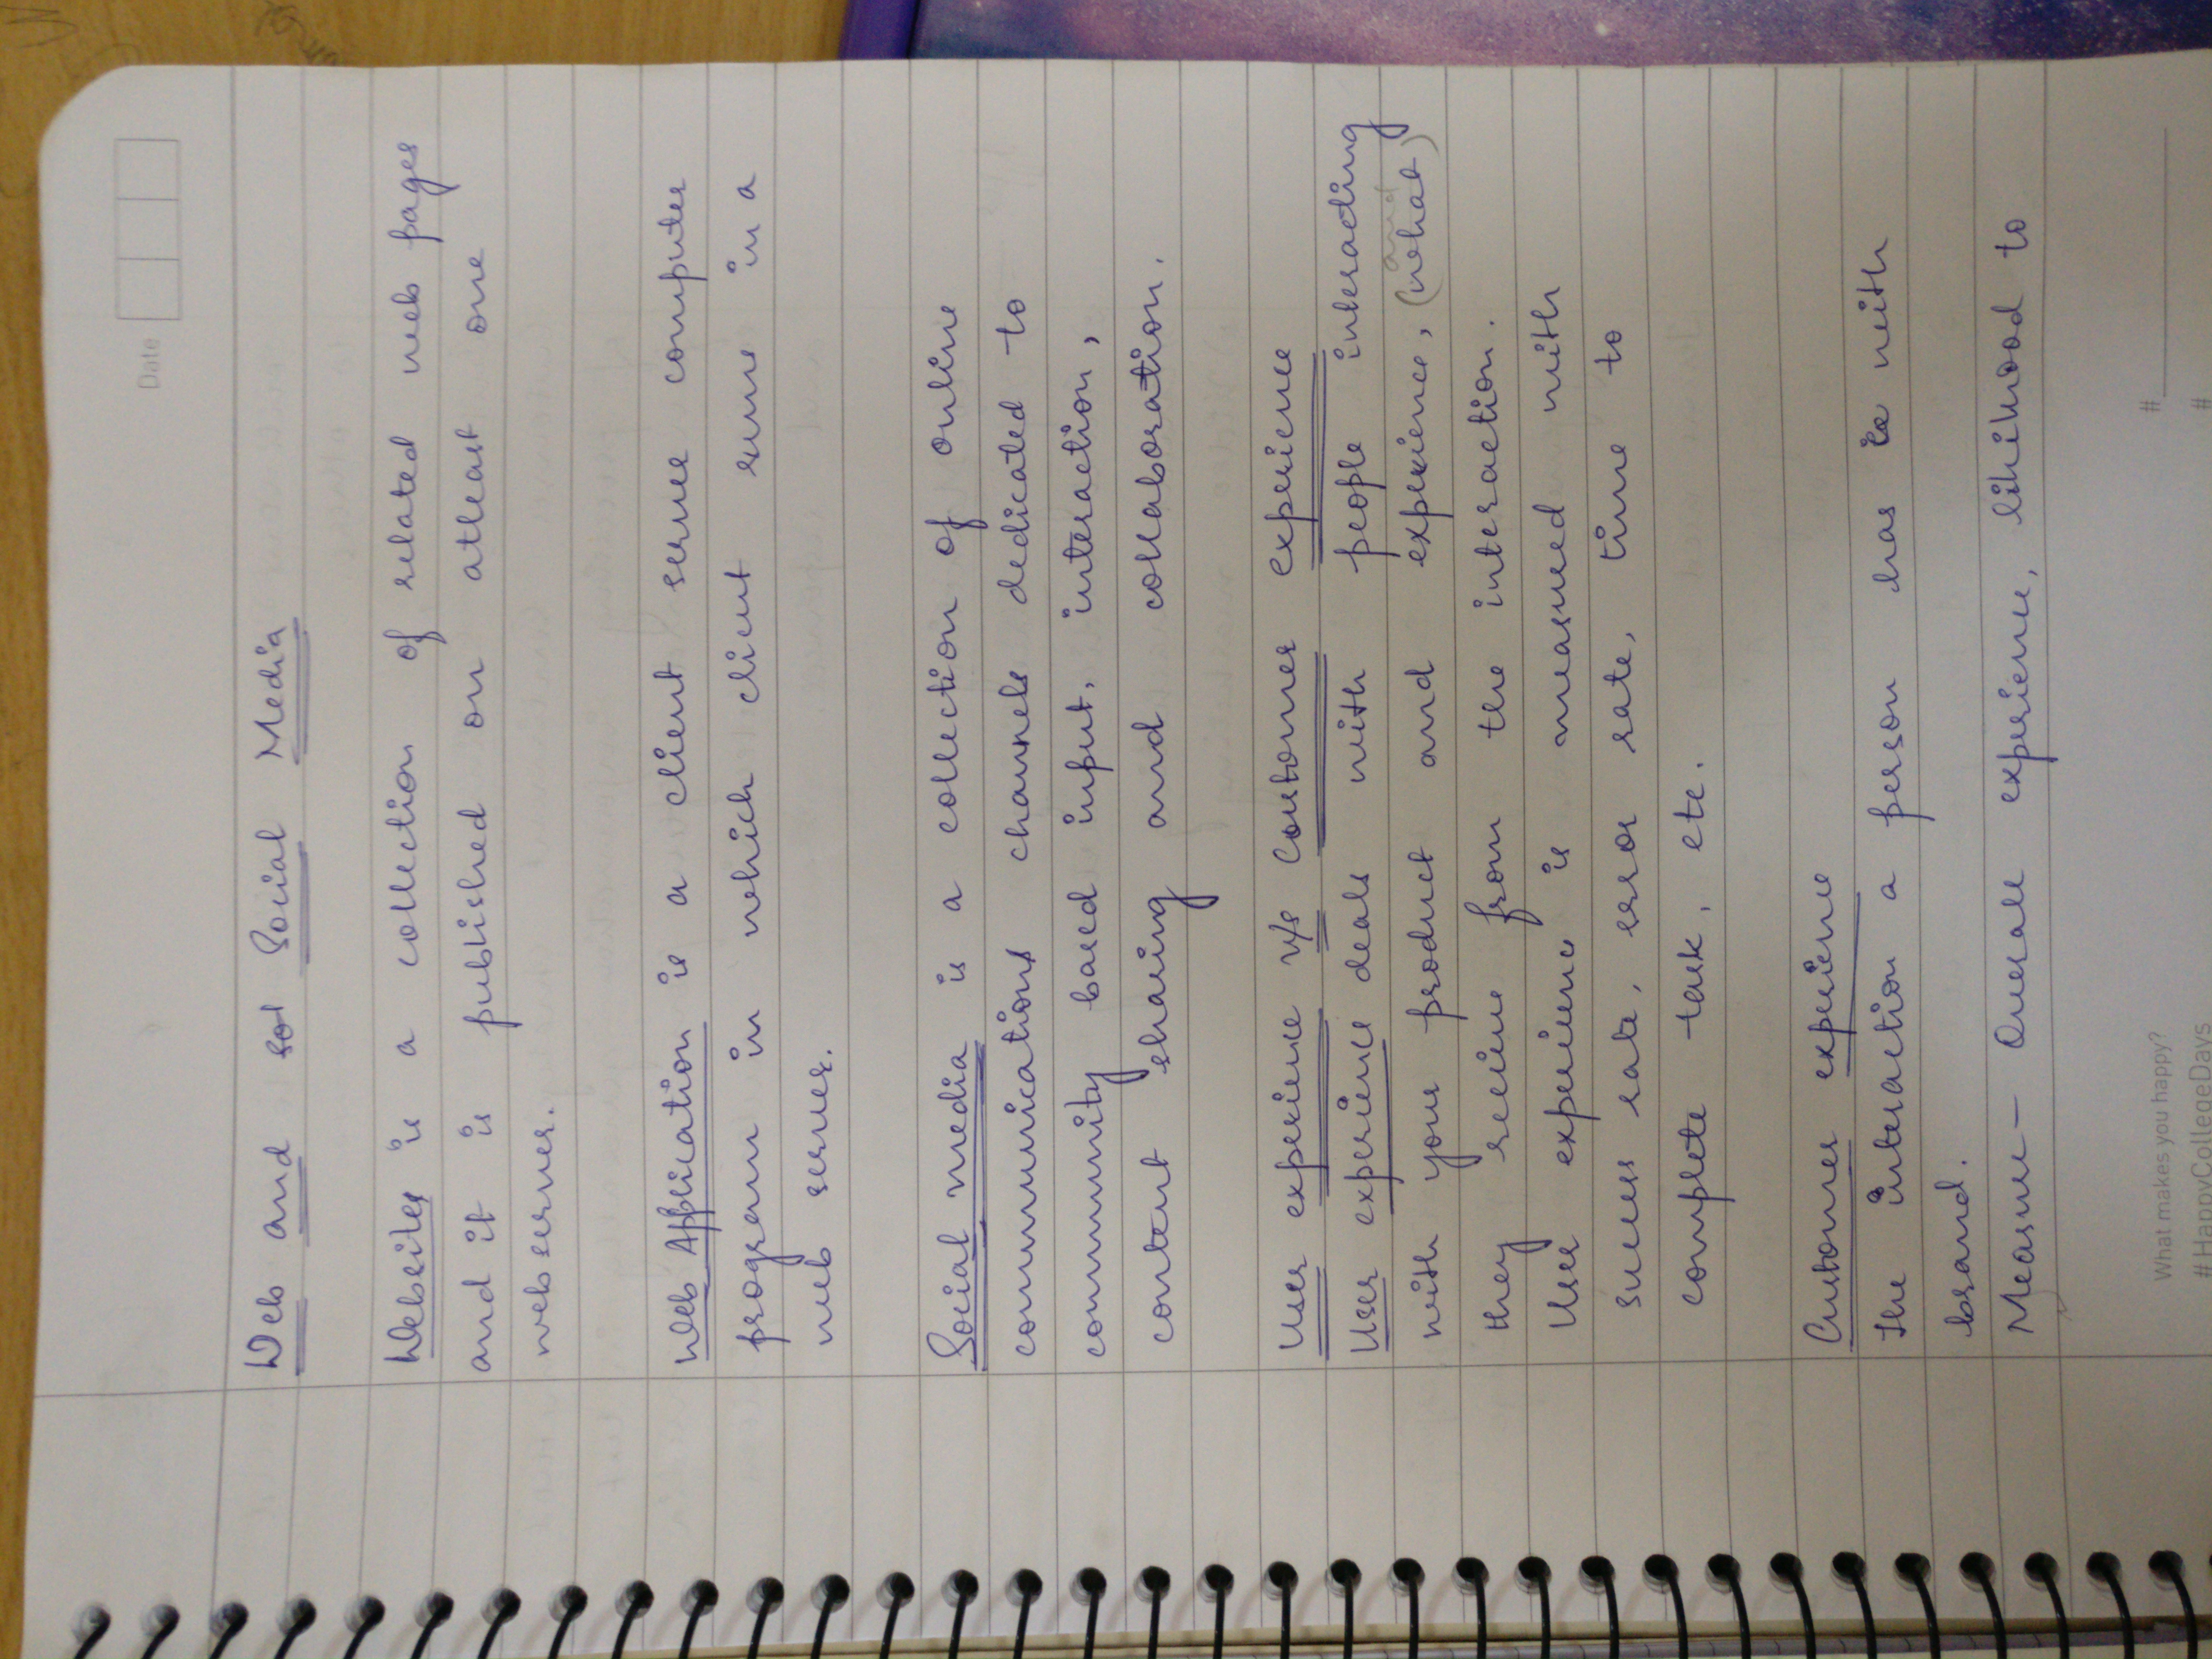 Date
Web and sol Social Media
Websites is a collection of related web pages
and it is published on atleast one
webserver.
Web Application is a client server computer
program in which client runs in a
web server.
Social media is a collection of online
communications channels dedicated to
community based input, interaction,
content sharing and collaboration.
User experience v/s Coustomer experience
User experience deals with people interacting
and
with your product and experience, (what)
they recieve from the interaction.
User experience is measured with
success rate, error rate, time to
complete task, etc.
Customer experience
The interaction a person has with
brand.
Measure - Overall experience, likihood to
What makes you happy? #
#HappyCollegeDays #